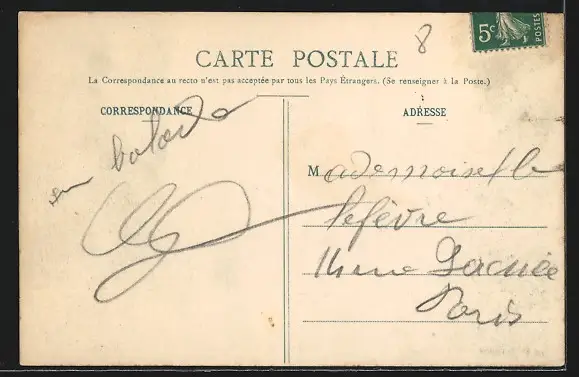 8
5c
POSTES
CARTE POSTALE
La Correspondance au recto n'est pas acceptée par tous les Pays Étrangers. (Se renseigner à la Poste.)
CORRESPONDANCE
en balade
ADRESSE
Mademoiselle
Lefèvre
rue Lacuée
Paris